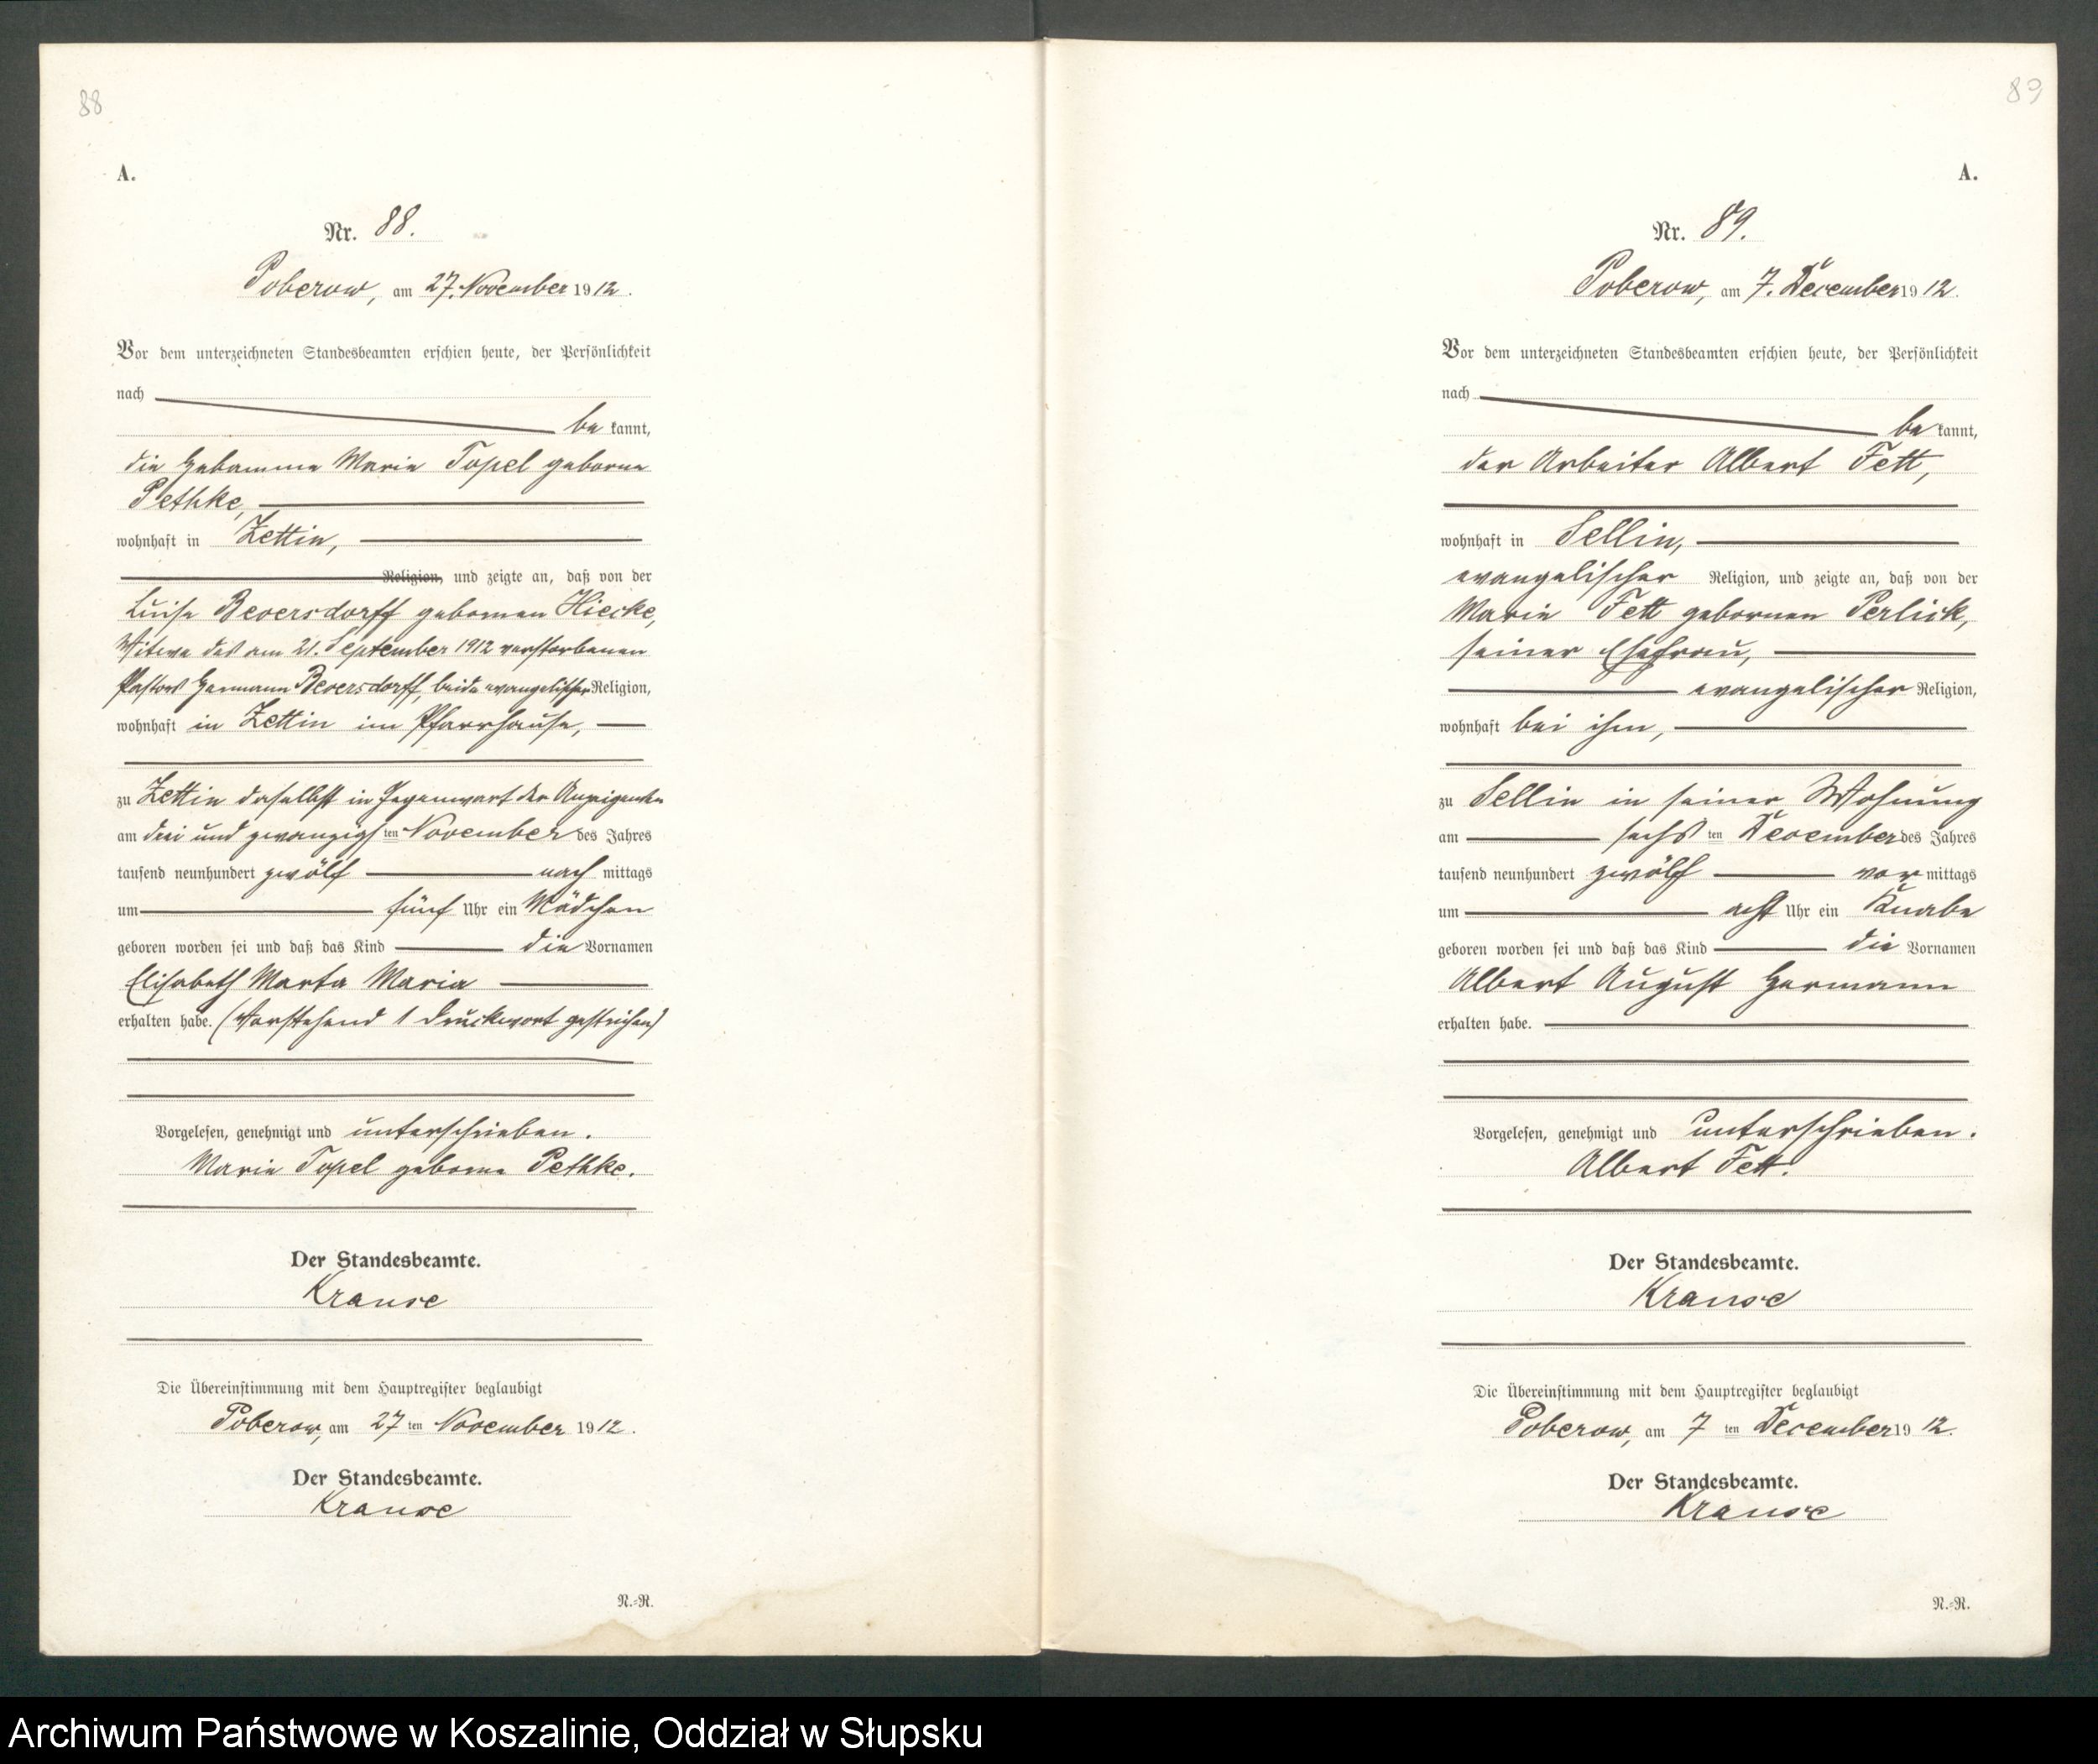 88
A.
Nr. 88.
Poberow, am 27. November 1912.
Vor dem unterzeichneten Standesbeamten erschien heute, der Persönlichkeit
nach
be kannt,
die Hebamme Marie Topel geborne
Pethke,
wohnhaft in Zettin,
Religion, und zeigte an, daß von der
Luise Beversdorff gebornen Hiecke,
Witwe des am 21. September 1912 verstorbenen
Pastors Hermann Beversdorff, beide evangelischer Religion,
wohnhaft in Zettin im Pfarrhause,
zu Zettin daselbst in Gegenwart der Anzeigenden
am drei und zwanzigsten November des Jahres
tausend neunhundert zwölf nach mittags
um fünf Uhr ein Mädchen
geboren worden sei und daß das Kind die Vornamen
Elisabeth Marta Maria
erhalten habe. (Vorstehend 1 Druckwort gestrichen)
Vorgelesen, genehmigt und unterschrieben.
Marie Topel geborne Pethke.
Der Standesbeamte.
Krause
Die Übereinstimmung mit dem Hauptregister beglaubigt
Poberow, am 27 ten November 1912.
Der Standesbeamte.
Krause
N.=R.
89
A.
Nr. 89.
Poberow, am 7. December 1912.
Vor dem unterzeichneten Standesbeamten erschien heute, der Persönlichkeit
nach
be kannt,
der Arbeiter Albert Fett,
wohnhaft in Sellin,
evangelischer Religion, und zeigte an, daß von der
Marie Fett gebornen Perlick,
seiner Ehefrau,
evangelischer Religion,
wohnhaft bei ihm,
zu Sellin in seiner Wohnung
am sechs ten December des Jahres
tausend neunhundert zwölf vor mittags
um acht Uhr ein Knabe
geboren worden sei und daß das Kind die Vornamen
Albert August Hermann
erhalten habe.
Vorgelesen, genehmigt und unterschrieben.
Albert Fett.
Der Standesbeamte.
Krause
Die Übereinstimmung mit dem Hauptregister beglaubigt
Poberow, am 7 ten December 1912.
Der Standesbeamte.
Krause
N.=R.
Archiwum Państwowe w Koszalinie, Oddział w Słupsku